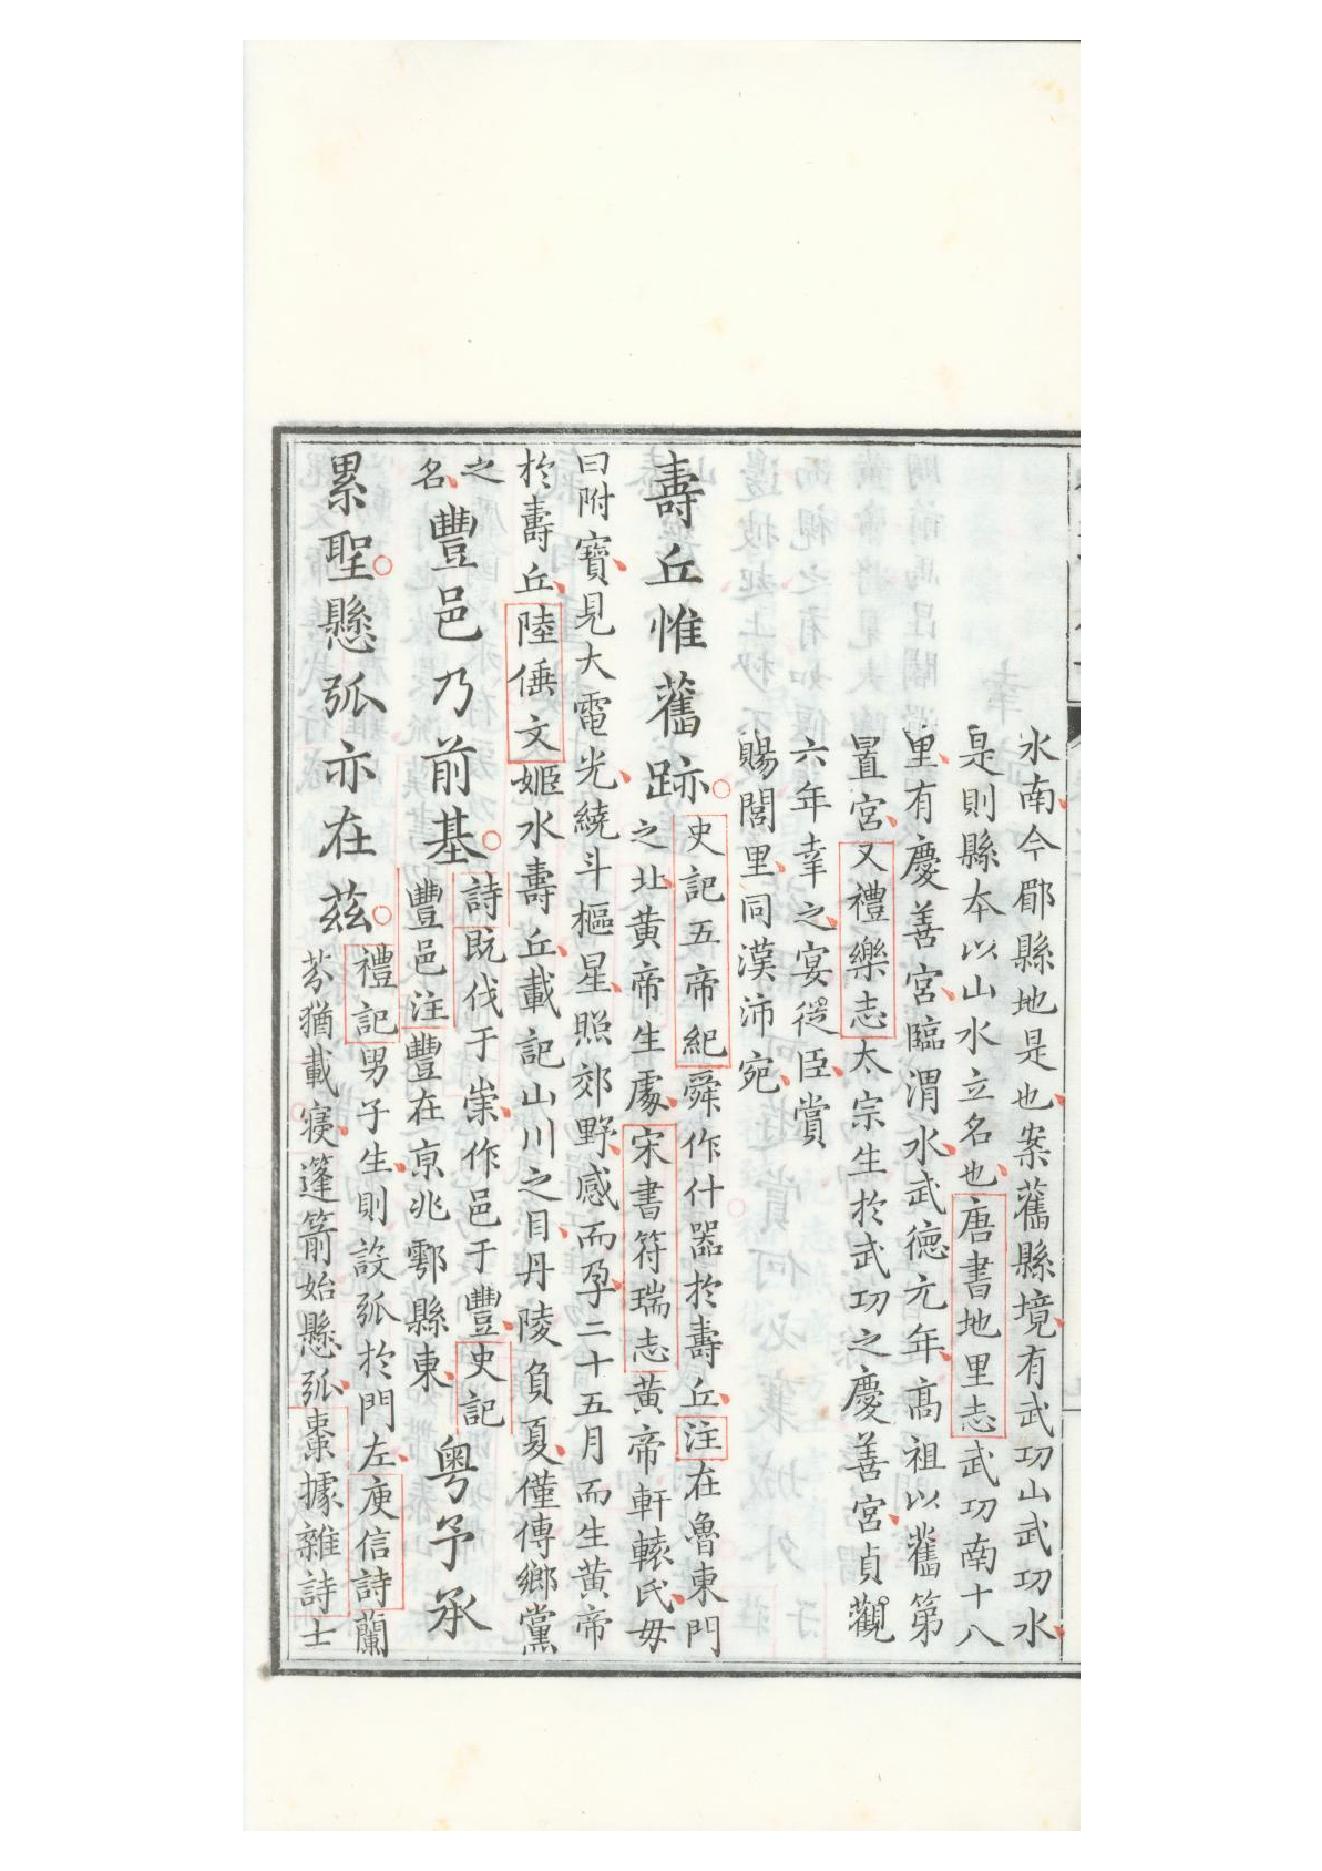 水南今郿縣地是也案舊縣境有武功山武功水
是則縣本以山水立名也唐書地里志武功南十八
里有慶善宮臨渭水武德元年高祖以舊第
置宮又禮樂志太宗生於武功之慶善宮貞觀
六年幸之宴從臣賞
賜閭里同漢沛宛
壽丘惟舊跡史記五帝紀舜作什器於壽丘注在魯東門
之北黃帝生處宋書符瑞志黃帝軒轅氏母
曰附寶見大電光繞斗樞星照郊野感而孕二十五月而生黃帝
於壽丘陸倕文姬水壽丘載記山川之目丹陵負夏僅傳鄉黨
之
名豐邑乃前基詩既伐于崇作邑于豐史記
豐邑注豐在京兆鄠縣東粵予承
累聖懸弧亦在茲禮記男子生則設弧於門左庾信詩蘭
芬猶載寢蓬箭始懸弧棗據雜詩士